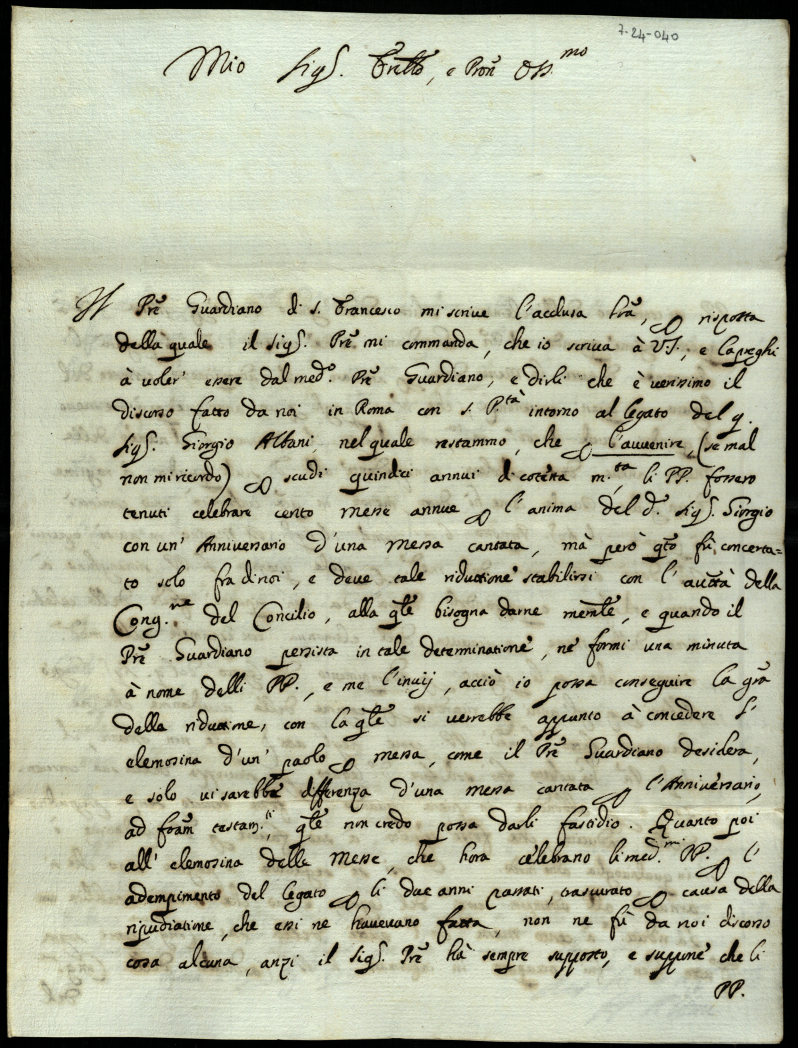 7-24-040
Mio Sig.r Frēllo, e Prōn Oss.mo
Il Prē Guardiano di S. Francesco mi scrive l'acclusa lrā, risposta
della quale il Sig.r Prē mi commanda, che io scriva à VS., e la preghi
à voler' essere dal med.o Prē Guardiano, e dirli che è verissimo il
discorso fatto da noi in Roma con S. P.tà intorno al legato del q.
Sig.r Giorgio Albani, nel quale restammo, che l'avvenire, (se mal
non mi ricordo) scudi quindici annui di cotesta m.ta li PP. fossero
tenuti celebrare cento messe annue l'anima del d. Sig.r Giorgio
con un' Anniversario d'una messa cantata, mà però q̄sto fù concerta=
to solo fra di noi, e deve tale riduttione stabilirsi con l'autt̄à della
Cong.ne del Concilio, alla q̄le bisogna darne mem̄le, e quando il
Prē Guardiano persista in tale determinatione, ne formi una minuta
à nome delli PP., e me l'invij, acciò io possa conseguire la gr̄a
della riduttione, con la q̄le si verrebbe appunto à concedere l'
elemosina d'un' paolo messa, come il Prē Guardiano desidera,
e solo vi sarebbe differenza d'una messa cantata l'Anniversario,
ad foām testam.ti, q̄le non credo possa darli fastidio. Quanto poi
all' elemosina delle Messe, che hora celebrano li med.mi PP. l'
adempimento del legato li due anni passati, trascurato causa della
ripudiatione, che essi ne havevano fatta, non ne fù da noi discorso
cosa alcuna, anzi il Sig.r Prē hà sempre supposto, e suppone che li
PP.